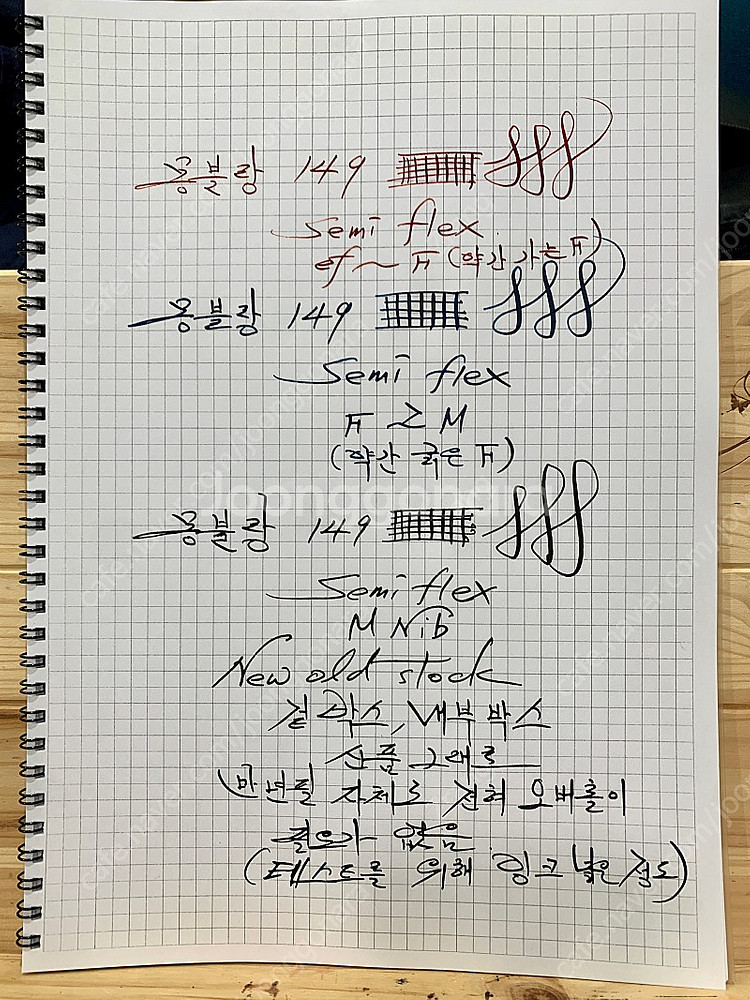 몽블랑 149
Semi flex
ef ~ F (약간 가는 F)
몽블랑 149
Semi flex
F ≥ M
(약간 굵은 F)
몽블랑 149
Semi flex
M Nib
New old stock
겉박스, 내부박스
신품 그대로
만년필 자체로 전혀 오버홀이
필요가 없음
(테스트를 위해 잉크 넣은 정도)